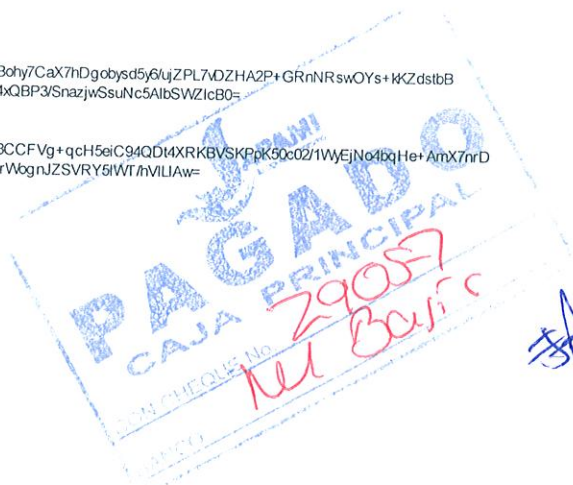 Bohy7CaX7hDgobysd5y6/ujZPL7vDZHA2P+GRnNRswOYs+kKZdstbB
4xQBP3/SnazjwSsuNc5AlbSWZIcB0=
BCCFVg+qcH5eiC94QDt4XRKBVSKPpK50c02/1WyEjNo4bqHe+AmX7nrD
rWognJZSVRY5IWT/hVILIAw=
JAPAMI
PAGADO
CAJA PRINCIPAL
CON CHEQUE No. 29057
BANCO